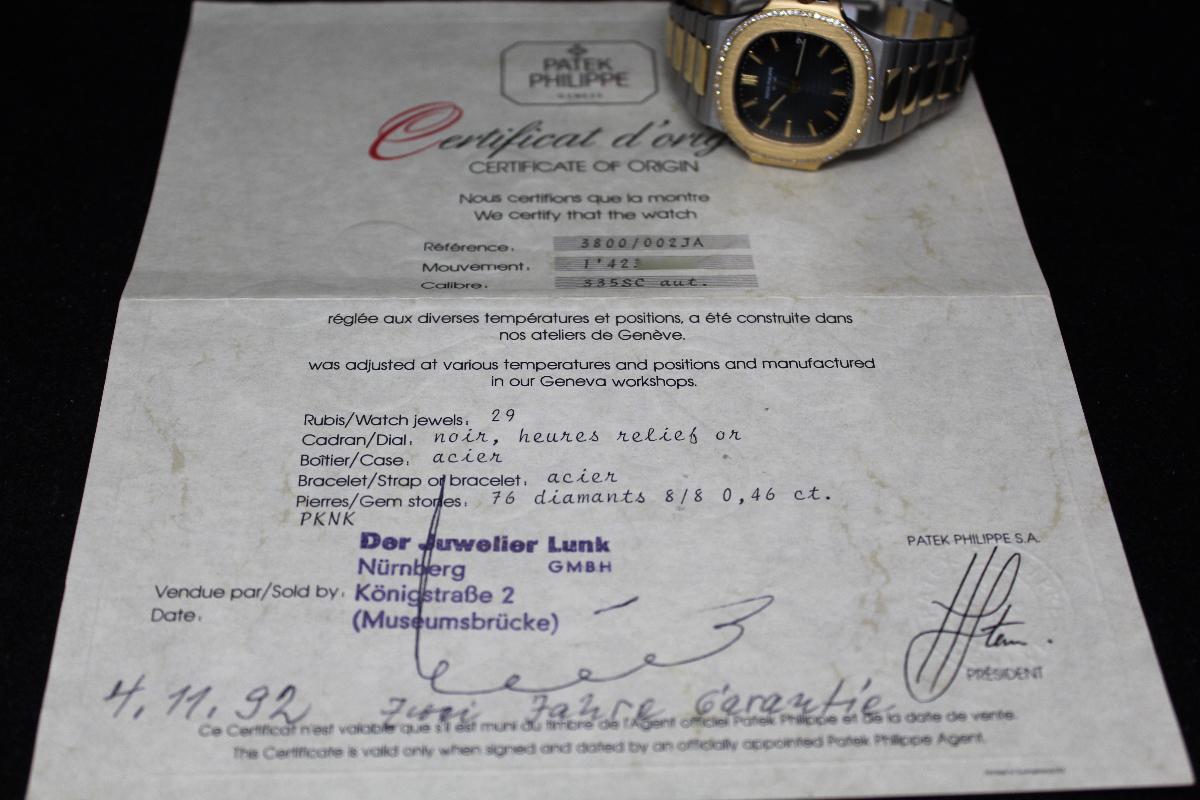 PATEK
PHILIPPE
GENEVE
Certificat d'orig
CERTIFICATE OF ORIGIN
Nous certifions que la montre
We certify that the watch
Référence. 3800/002JA
Mouvement. 1'42
Calibre. 335SC aut.
réglée aux diverses températures et positions, a été construite dans
nos ateliers de Genève.
was adjusted at various temperatures and positions and manufactured
in our Geneva workshops.
Rubis/Watch jewels. 29
Cadran/Dial. noir, heures relief or
Boîtier/Case. acier
Bracelet/Strap or bracelet. acier
Pierres/Gem stones. 76 diamants 8/8 0,46 ct.
PKNK
Der Juwelier Lunk
Nürnberg GMBH
Vendue par/Sold by. Königstraße 2
Date. (Museumsbrücke)
PATEK PHILIPPE S.A.
PRÉSIDENT
4.11.92 Zwei Jahre Garantie
Ce Certificat n'est valable que s'il est muni du timbre de l'Agent officiel Patek Philippe et de la date de vente.
The Certificate is valid only when signed and dated by an officially appointed Patek Philippe Agent.